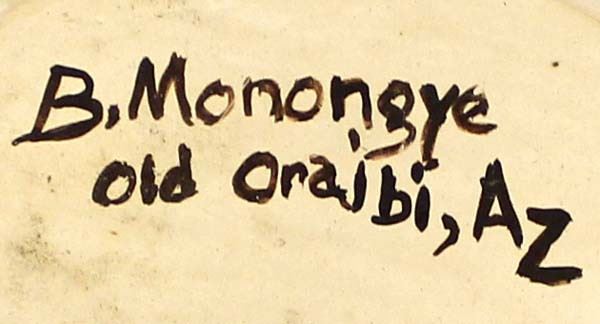 B. Monongye
old Oraibi, AZ